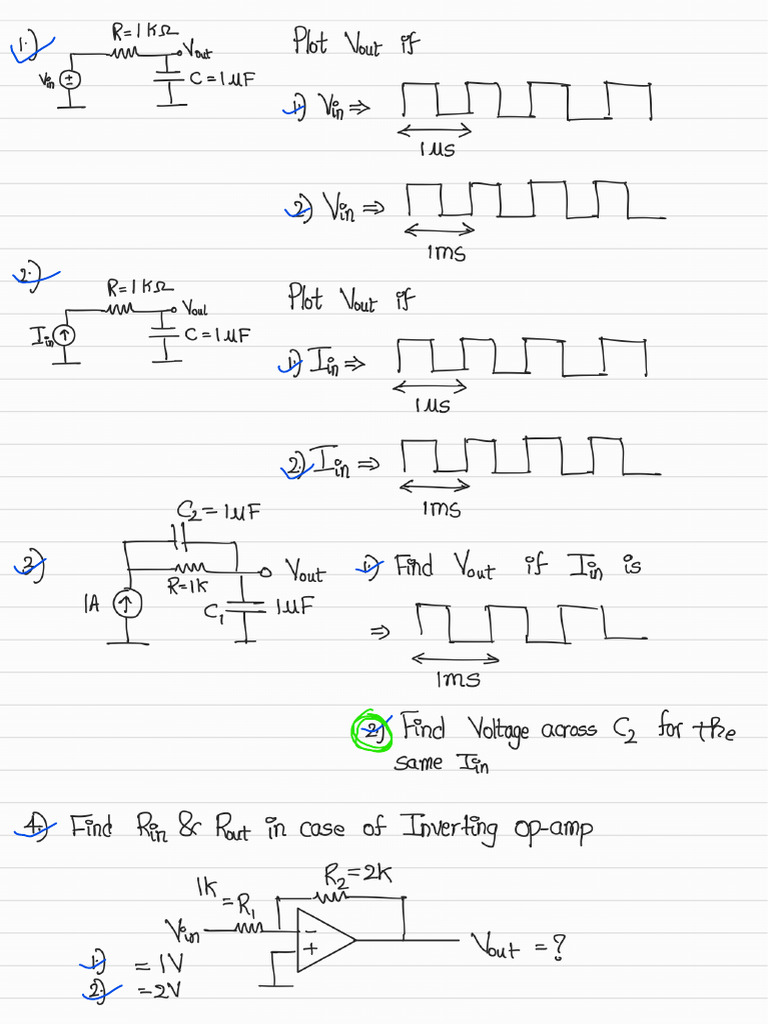 1.) R=1KΩ Vout Plot Vout if
Vin C=1μF
1.) Vin ⇒
1μs
2.) Vin ⇒
1ms
2.)
R=1KΩ Vout Plot Vout if
Iin C=1μF
1.) Iin ⇒
1μs
2.) Iin ⇒
1ms
C2=1μF
3.) Vout 1.) Find Vout if Iin is
R=1K
1A C1 1μF
⇒
1ms
2.) Find Voltage across C2 for the
same Iin
4.) Find Rin & Rout in case of Inverting op-amp
R2=2K
1K
=R1
Vin - Vout = ?
+
1.) =1V
2.) =2V